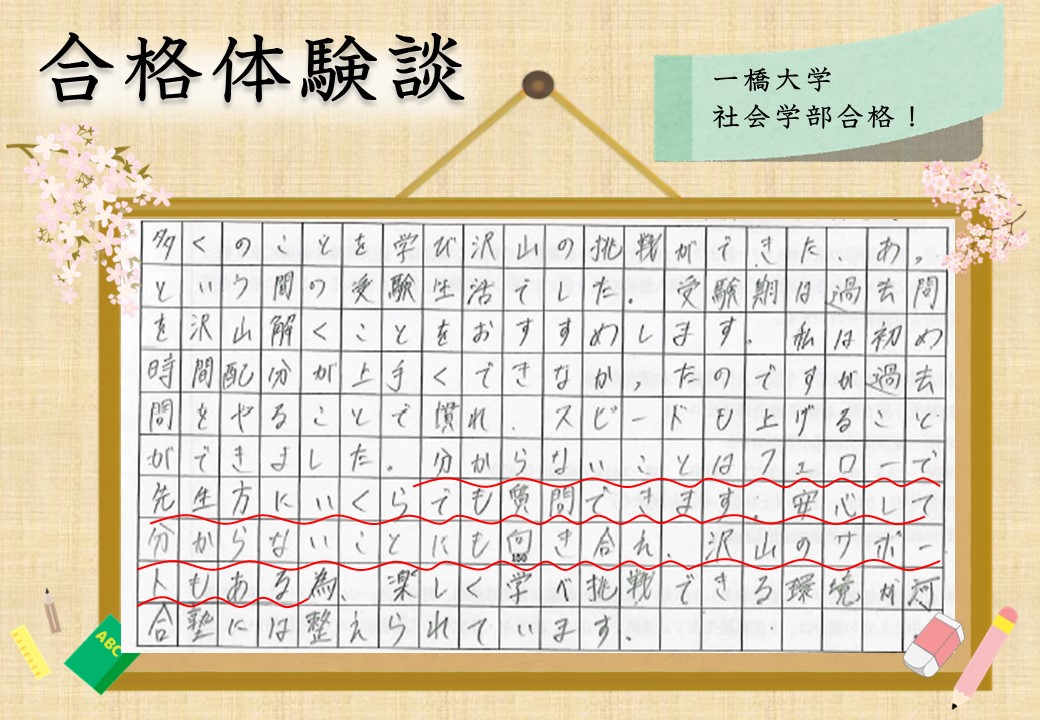 合格体験談
一橋大学
社会学部合格！
多くのことを学び沢山の挑戦ができた、あっ
という間の受験生活でした。受験期は過去問
を沢山解くことをおすすめします。私は初め
時間配分が上手くできなかったのですが過去
問をやることで慣れ、スピードも上げること
ができました。分からないことはフェローで
先生方にいくらでも質問できます。安心して
分からないことにも向き合え、沢山のサポー
150
トもある為、楽しく学べ挑戦できる環境が河
合塾には整えられています。
ABC